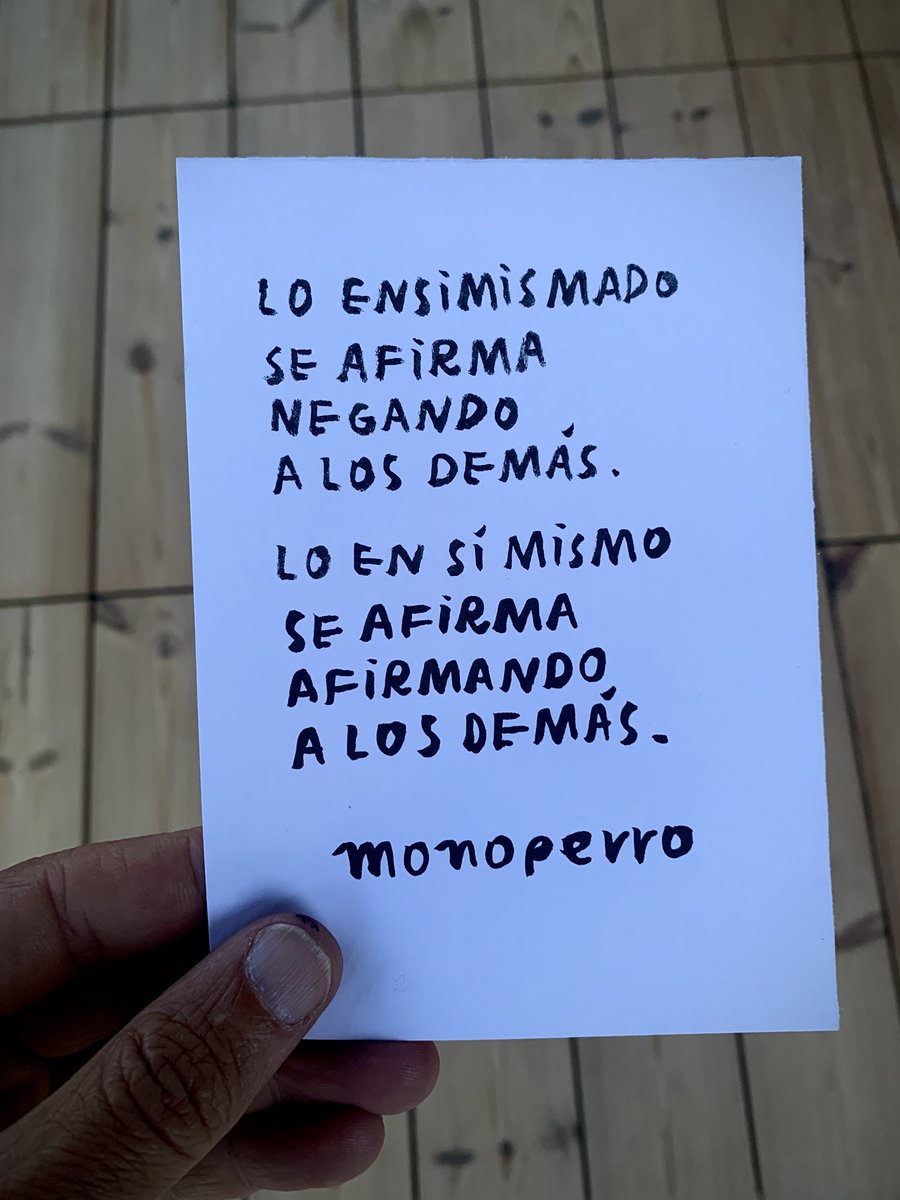 LO ENSIMISMADO
SE AFIRMA
NEGANDO
A LOS DEMÁS.
LO EN SÍ MISMO
SE AFIRMA
AFIRMANDO
A LOS DEMÁS.
monoperro